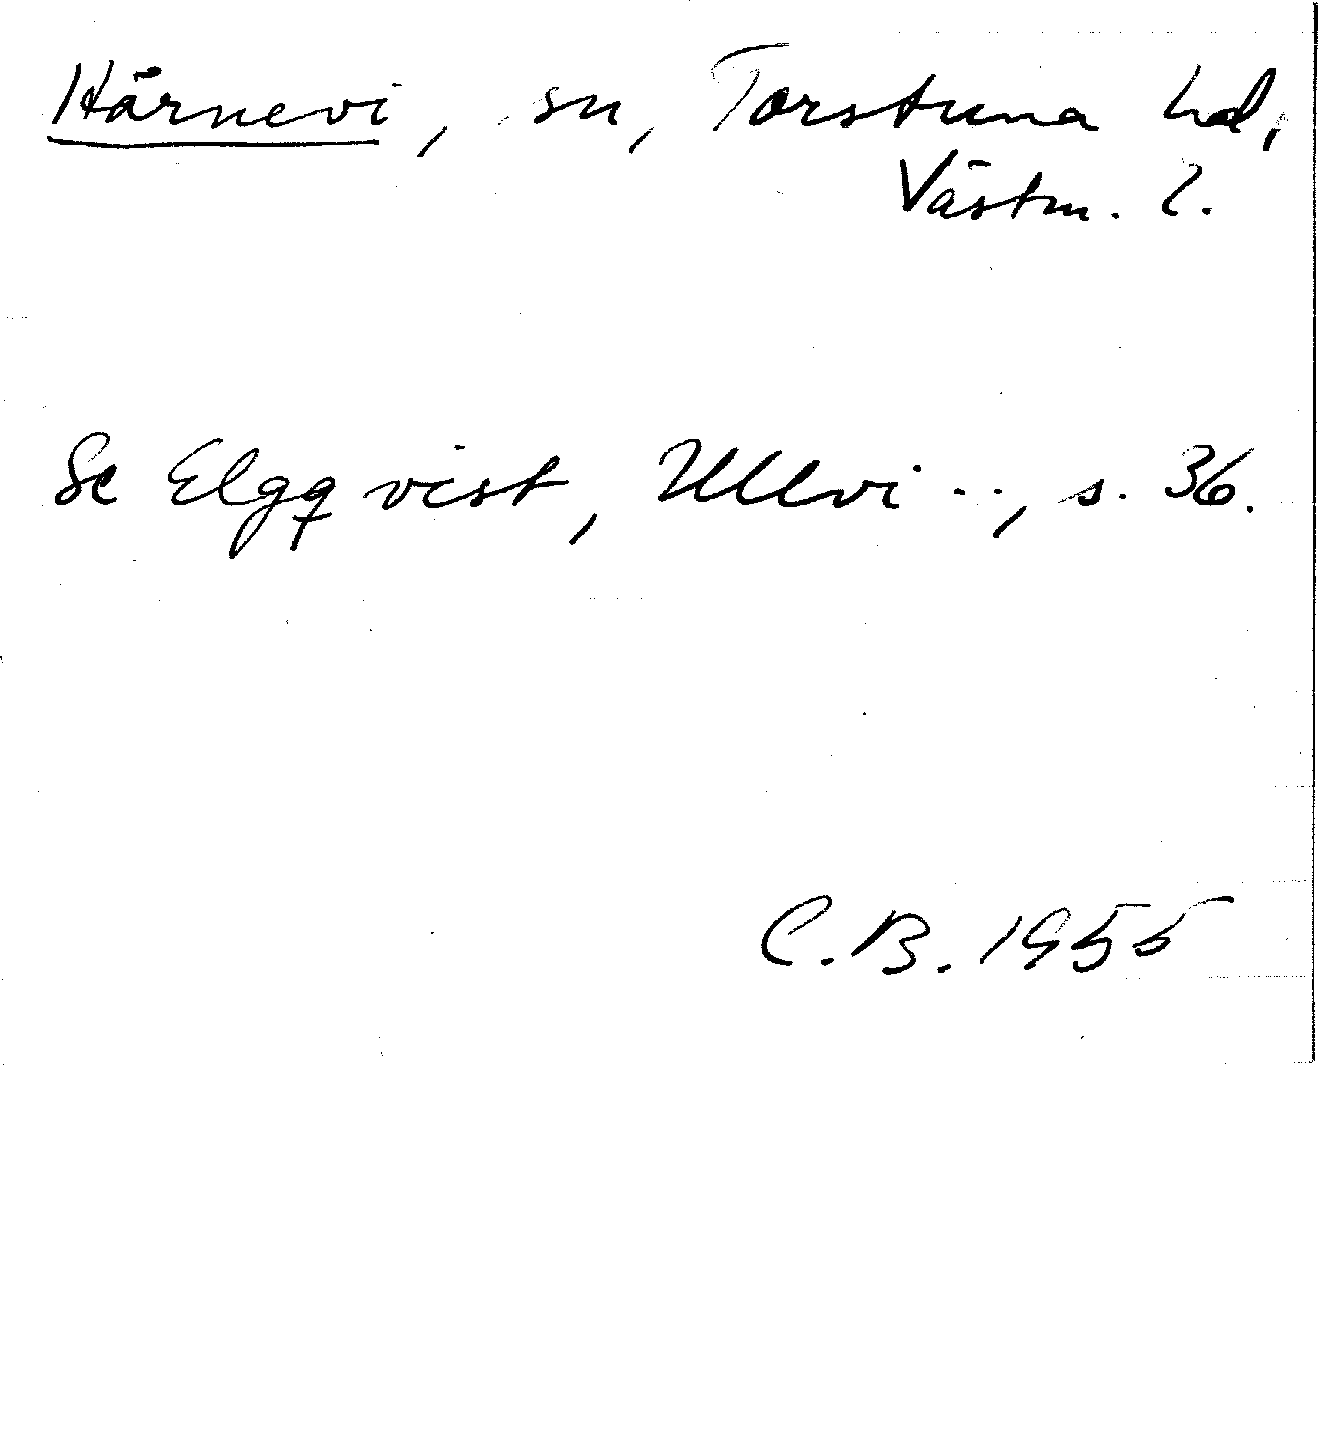 Härnevi, sn, Torstuna hd,
Västm. l.
Se Elgqvist, Ullvi .., s. 36.
C.B. 1955